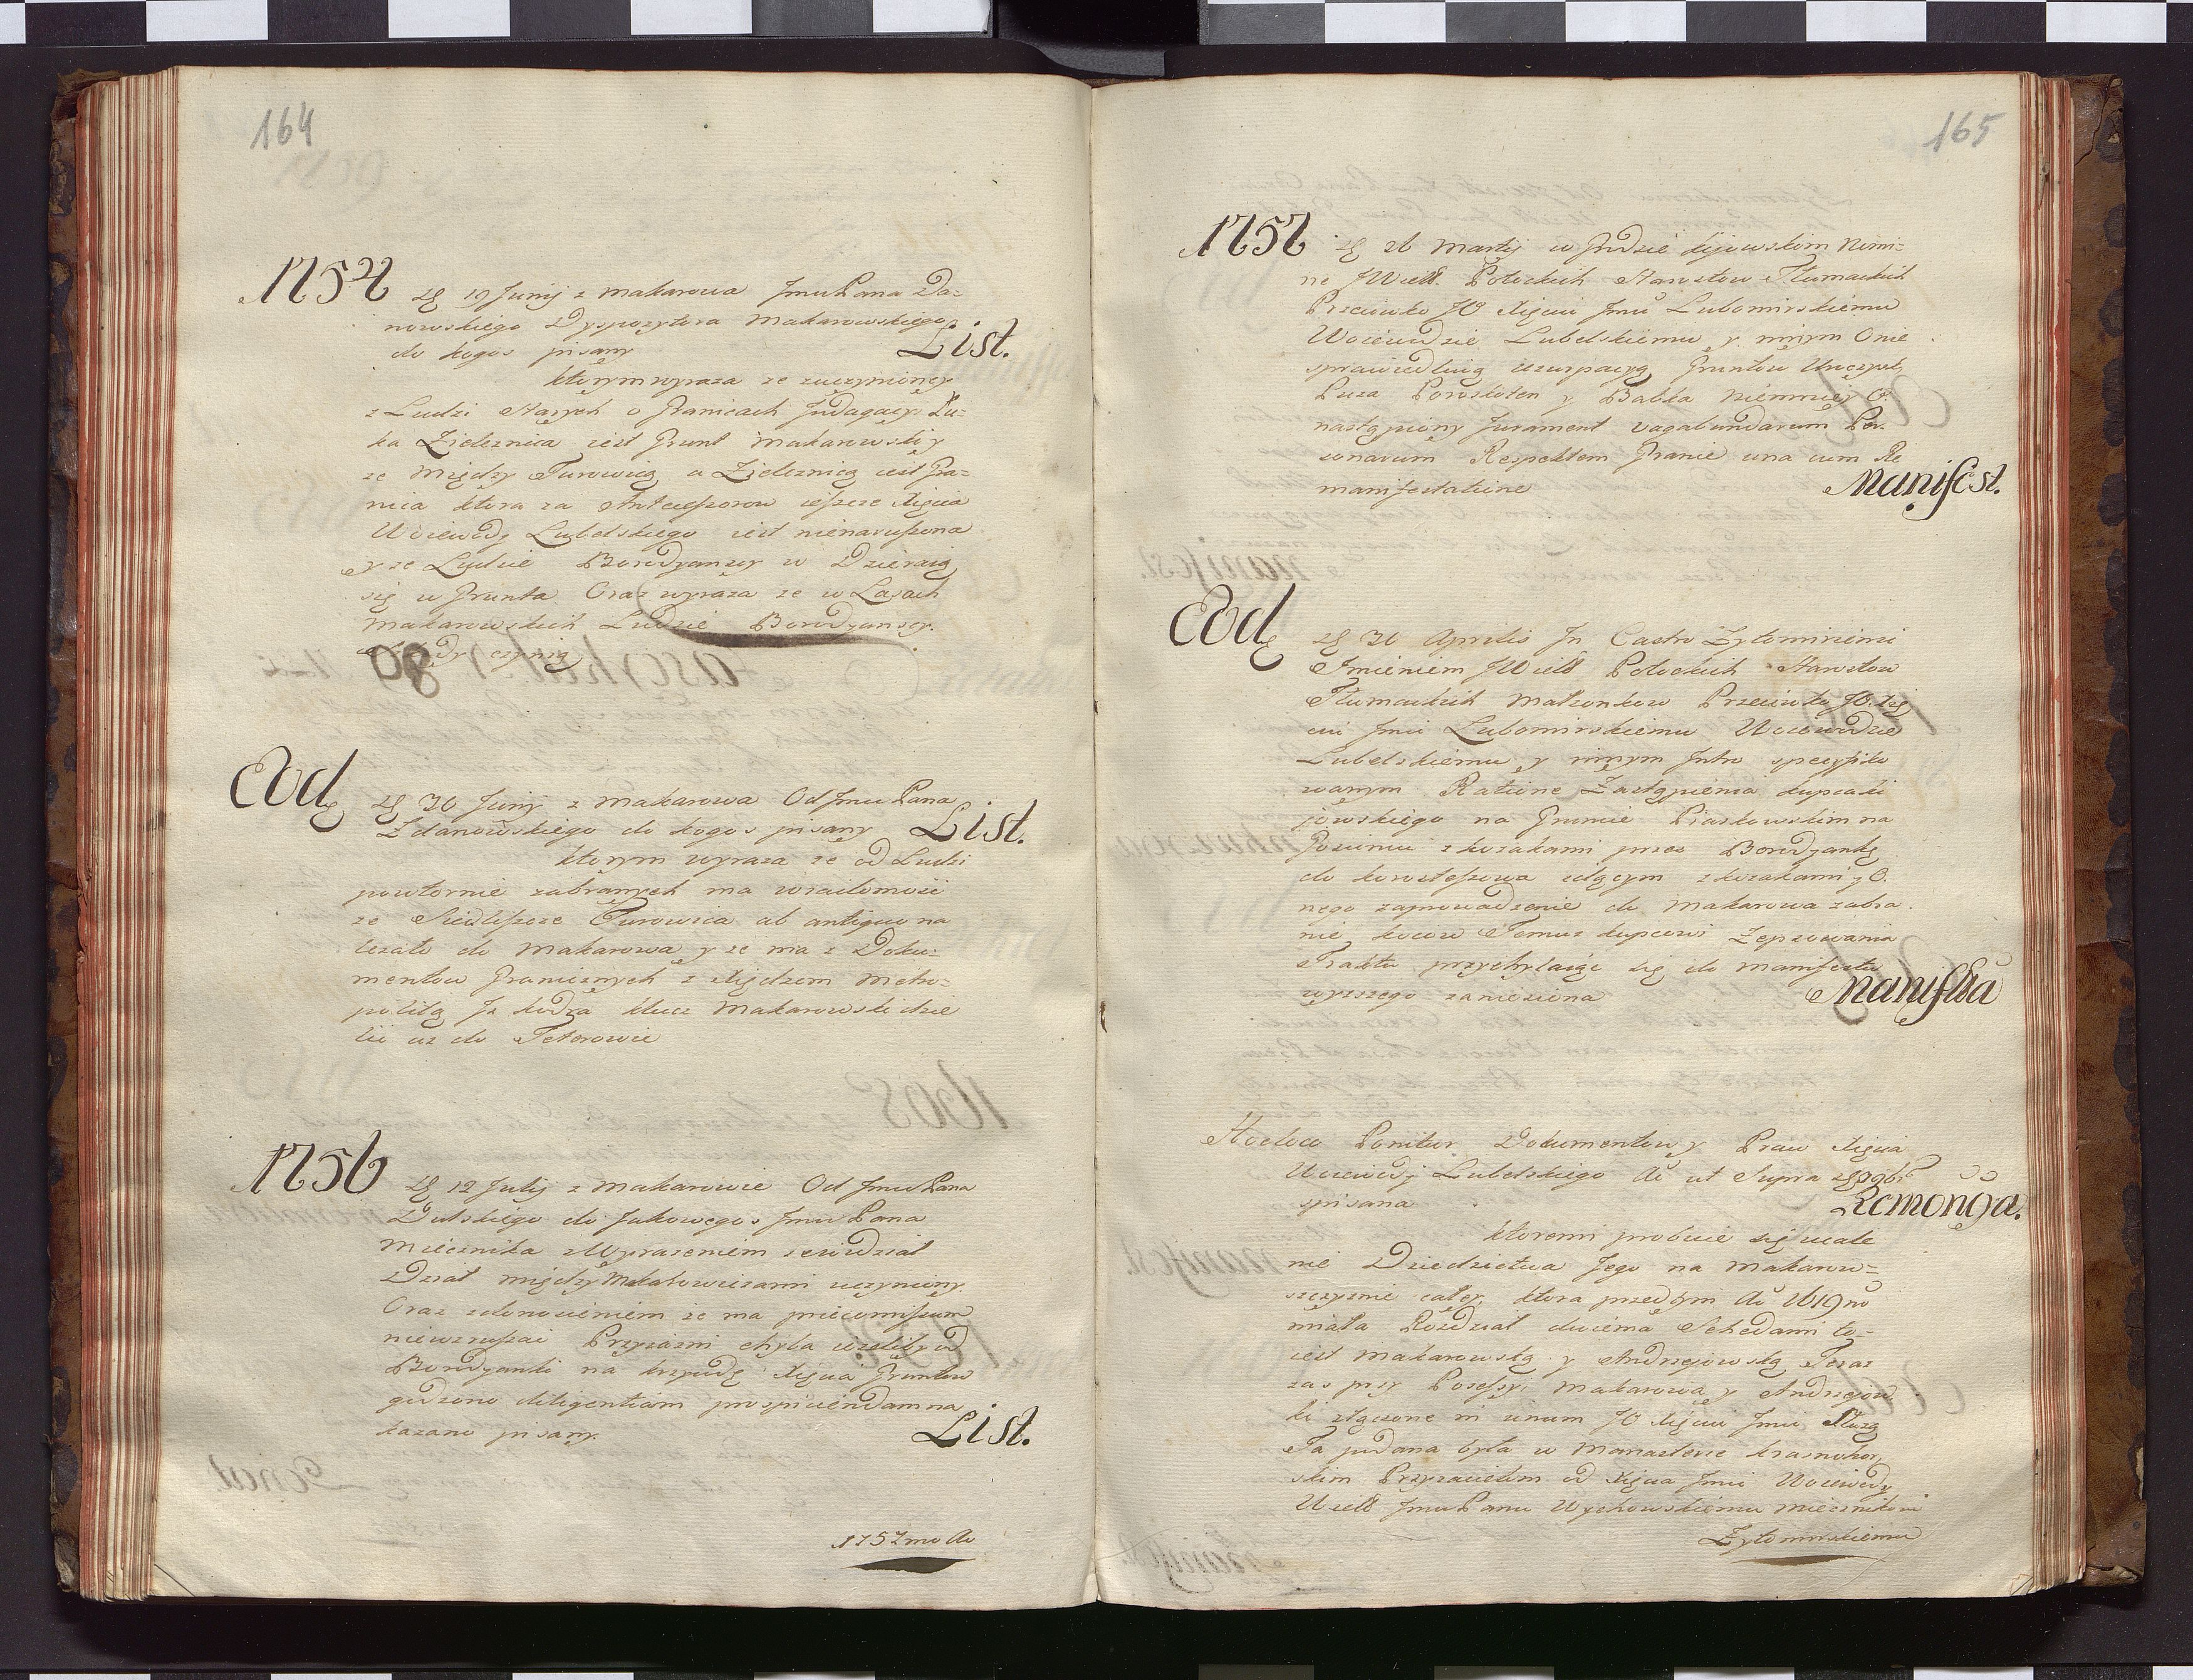 164
1754 19 Junij z Makarowa Jmu Pana Da=
nowskiego Dyspozytora Makarowskiego
do kogos pisany List.
ktorym wyraza ze zuczynioney
z Ludzi Starych o Granicach Jndagacyi Ru=
ka Zieleznica iest Grunt Makarowski y
ze między Turowicą a Zieleznicą iest Gra=
nica ktora za Antecessorow ieszcze Xięcia
Woiewody Lubelskiego iest nienaruszona
y ze Ludzie Borodyanscy w Dzieraią
się w Grunta Oraz wyraza ze w Lasach
Makarowskich Ludzie Borodyanscy.
czynią
Eod 30 Junij z Makarowa Od Jmu Pana
Zdanowskiego do kogos pisany List.
ktorym wyraza ze od Ludzi
powtornie zabranych ma wiadomosc
ze Siedliszcze Turowica ab antiquo na
lezało do Makarowa y ze ma z Doku=
mentow Granicznych z Xiędzem Metro=
politą Jz kodrą klucz Makarowski dzie
lic az do Teterowie
1756 12 Julij z Makarowie Od Jmu Pana
Dulskiego do Jakowegos Jmu Pana
Miecznika z Wyrazeniem ze widział
Dział między Makarowiczami uczyniony.
Oraz z doniesieniem ze ma
niewzruszac Przyiazni chyba ieżeliby od
Borodyanki na krzywdę Xięcia Gruntow
godzono diligentiam prospiciendam na
kazano pisany. List.
1757mo Ao
165
1757 26 Martij w Grodzie kijowskim Nomi=
ne JWiell. Potockich Starostow Tłumackich
Przeciwko JO Xięciu Jmu Lubomirskiemu
Woiewodzie Lubelskiemu y innym Onie
sprawiedliwą uzurpacyą Gruntow Uroczysk
Puza Poroskoten y Babka niemniey O.
nastąpiony Jurament vagabundarum Per.
sonarum Respektem Granic una cum Re
manifestatione Manifest.
Eod 30 Aprilis Jn Castro Zytomiriensi
Jmieniem JWiell Potockich Starostow
Tłumackich Małzonkow Przeciwko JO. Xię
ciu Jmci Lubomirskiemu Woiewodzie
Lubelskiemu y innym Intro specyfiko
wanym Ratione Zastąpienia kupca ki
jowskiego na Gruncie Piaskowskim na
Goscincu z kozakami przez Borodyankę
do korosteszowa idącym z kozakami y O.
nego zaprowadzenie do Makarowa zabra.
nie kocow Temuz kupcowi Zepsowania
Traktu przychylaiąc się do Manifestu
wyzszego zaniesiona Manifesta
Hoc loco Ponitur Dokumentow y Praw Xięcia
Woiewody Lubelskiego Ao ut Supra 9bris
spisana
ktoremi probuie się całe
nie Dziedzictwa Jego na Makarow=
szczyznie całey, ktora przedtym Ao 1619no
miała Rozdział dwiema Schedami to=
iest Makarowską y Andrzejowską Teraz
zas przy Possessyi Makarowa y Andrzejow
ki złączone in unum JO Xięciu Jmci Służą
Ta podana była w Monasterze krasnohor
skim Przyiacielom od Xięcia Jmci Woiewody
Wiell Jmu Panu Wyhowskiemu Miecznikowi
Zytomirskiemu